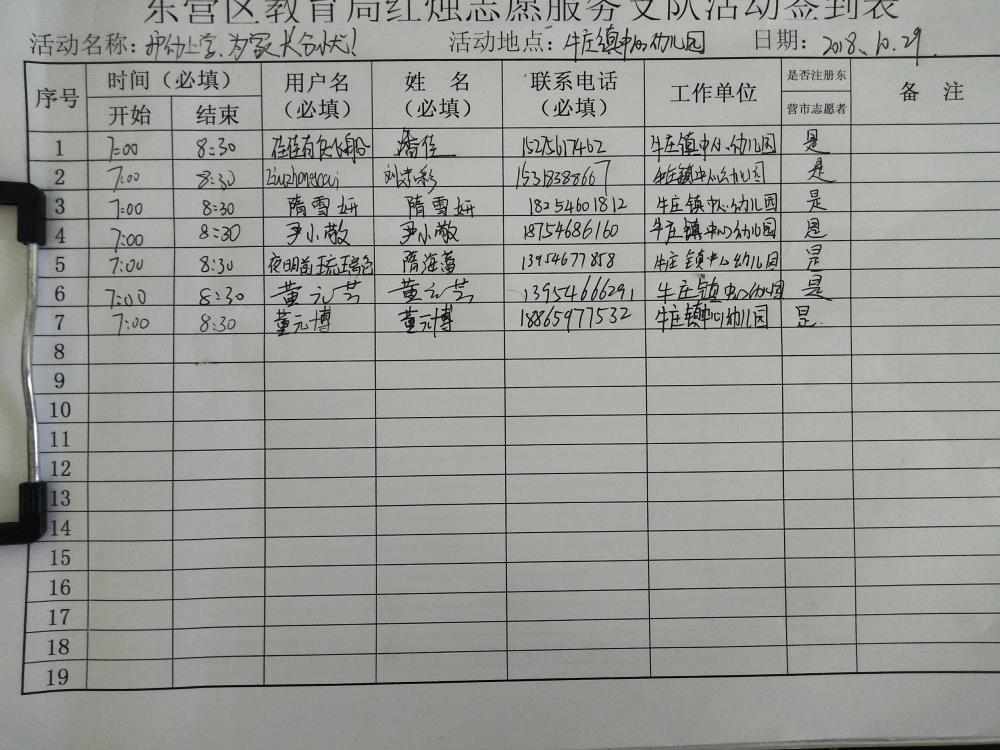 东营区教育局红烛志愿服务支队活动签到表
活动名称：护幼上学、为家长分忧！ 活动地点：牛庄镇中心幼儿园 日期：2018.10.29.
序号 时间（必填） 用户名（必填） 姓 名（必填） 联系电话（必填） 工作单位 是否注册东营市志愿者 备 注
开始 结束
1 7:00 8:30 乔佳 15275617462 牛庄镇中心幼儿园 是
2 7:00 8:30 15318388667 牛庄镇中心幼儿园 是
3 7:00 8:30 隋雪妍 隋雪妍 18254601812 牛庄镇中心幼儿园 是
4 7:00 8:30 尹小敏 尹小敏 18754686160 牛庄镇中心幼儿园 是
5 7:00 8:30 隋海营 13954677858 牛庄镇中心幼儿园 是
6 7:00 8:30 董元芸 董元芸 13954666291 牛庄镇中心幼儿园 是
7 7:00 8:30 董元博 董元博 18865977532 牛庄镇中心幼儿园 是.
8
9
10
11
12
13
14
15
16
17
18
19